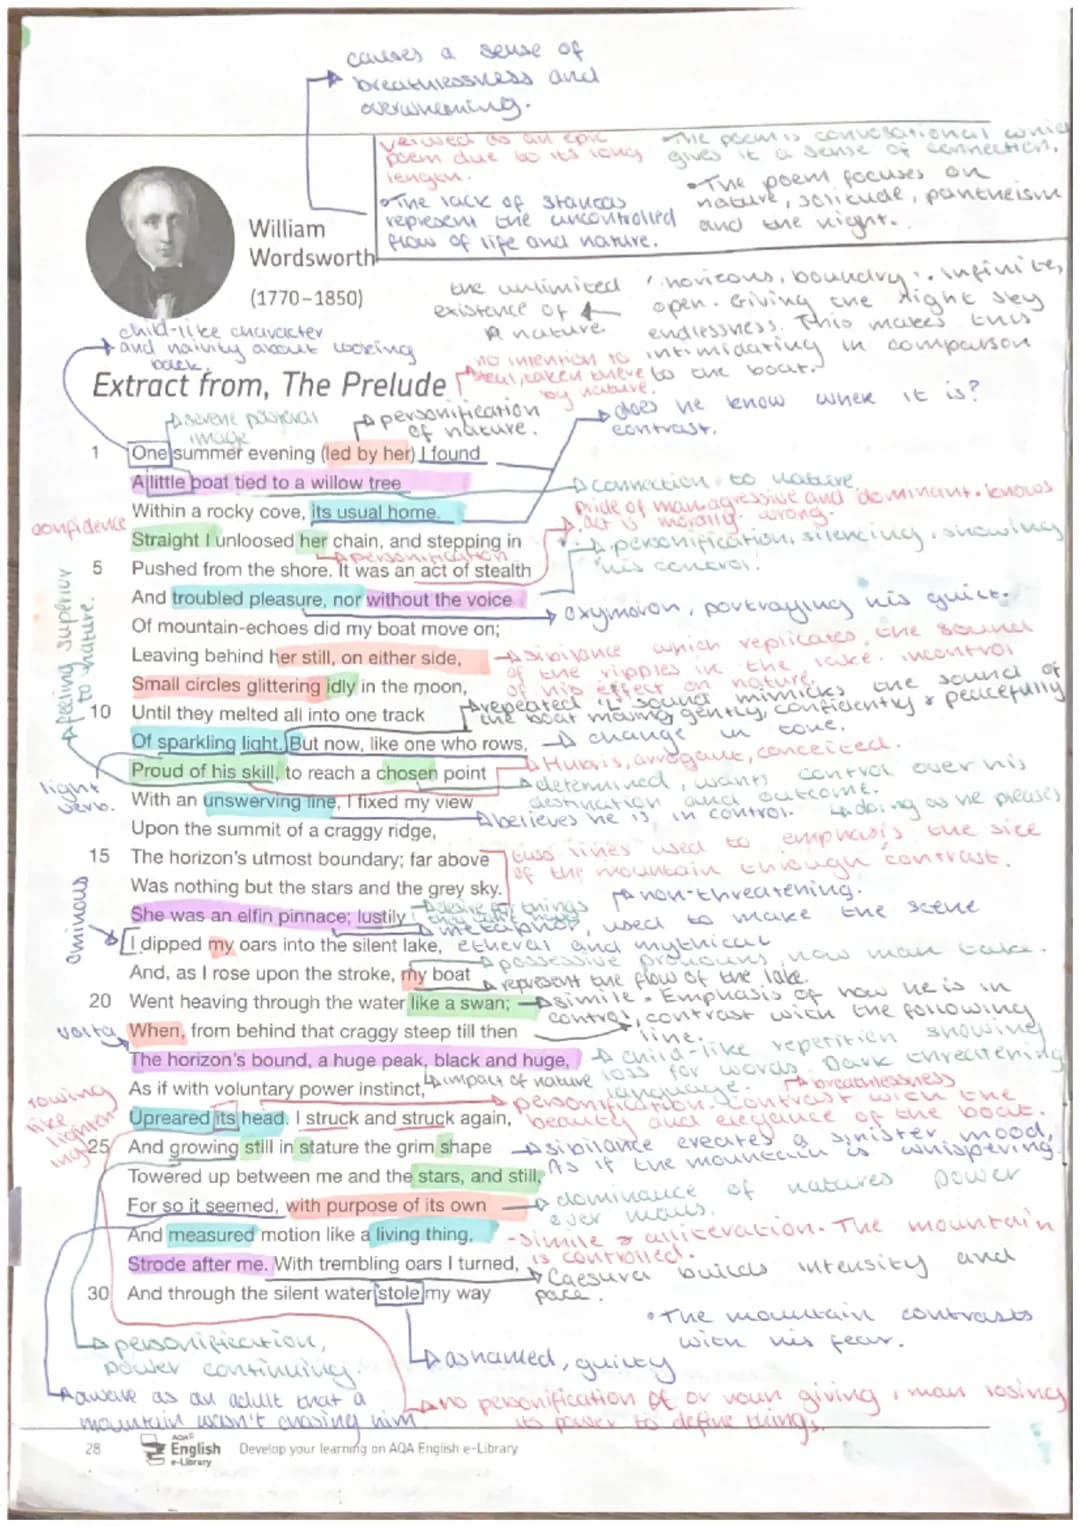 causes a sense of
breathlessness and
overwhelming.
veiwed as an epic
poem due to its long
length.
•The lack of stanzas
represent the uncontrolled
flow of life and nature.
•The poem is conversational which
gives it a sense of connection.
•The poem focuses on
nature, solitude, pantheism
and the night.
William
Wordsworth
(1770–1850)
the unlimited
existence of
nature
'horizons, boundry' : infinite,
open. Giving the night sky
endlessness. This makes this
intimidating in comparison
to the boat.
child-like character
and naivity about looking
back.
no intention to
steal, taken there
by nature.
Extract from, The Prelude
serene pastoral
image
personification
of nature.
does he know where it is?
contrast.
1 One summer evening (led by her) I found
A little boat tied to a willow tree
connection to nature
Within a rocky cove, its usual home.
pride of man, agressive and dominant. knows
act is morally wrong.
confidence
Straight I unloosed her chain, and stepping in
personification
personification, silencing, showing
his control.
5 Pushed from the shore. It was an act of stealth
And troubled pleasure, nor without the voice
oxymoron, portraying his guilt.
feeling superior
to nature.
Of mountain-echoes did my boat move on;
Leaving behind her still, on either side,
sibilance which replicates the sound
of the ripples in the lake. incontrol
of his effect on nature.
Small circles glittering idly in the moon,
repeated 'L' sound mimicks the sound of
the boat moving gently, confidently & peacefully
10 Until they melted all into one track
Of sparkling light. But now, like one who rows,
change in tone.
Proud of his skill, to reach a chosen point
Hubris, arrogant, conceited.
determined, wants control over his
destination and outcome.
light
verb.
With an unswerving line, I fixed my view
believes he is in control.
doing as he pleases
Upon the summit of a craggy ridge,
15 The horizon's utmost boundary; far above
two lines used to emphasis the size
of the mountain through contrast.
Was nothing but the stars and the grey sky.
non-threatening.
She was an elfin pinnace; lustily
metaphor, used to make the scene
etheral and mythical
ominous
I dipped my oars into the silent lake,
possessive pronouns, how man take.
And, as I rose upon the stroke, my boat
represent the flow of the lake.
20 Went heaving through the water like a swan;
simile. Emphasis of how he is in
control, contrast with the following
line.
volta
When, from behind that craggy steep till then
The horizon's bound, a huge peak, black and huge,
child-like repetition showing
loss for words. Dark threatening
language.
As if with voluntary power instinct,
impact of nature
breathlessness
rowing
like
Upreared its head. I struck and struck again,
personification. Contrast with the
beauty and elegance of the boat.
25 And growing still in stature the grim shape
sibilance creates a sinister mood,
As if the mountain is whispering.
Towered up between me and the stars, and still,
For so it seemed, with purpose of its own
dominance of natures power
over mans.
And measured motion like a living thing,
-simile & alliteration. The mountain
is controlled.
Strode after me. With trembling oars I turned,
Caesura builds intensity and
pace.
30 And through the silent water stole my way
•The mountain contrasts
with his fear.
personification,
power continuing.
ashamed, guilty
aware as an adult that a
mountain wasn't chasing him
no personification of or noun giving, man losing
its power to define things.
28
AQA
English
e-Library
Develop your learning on AQA English e-Library